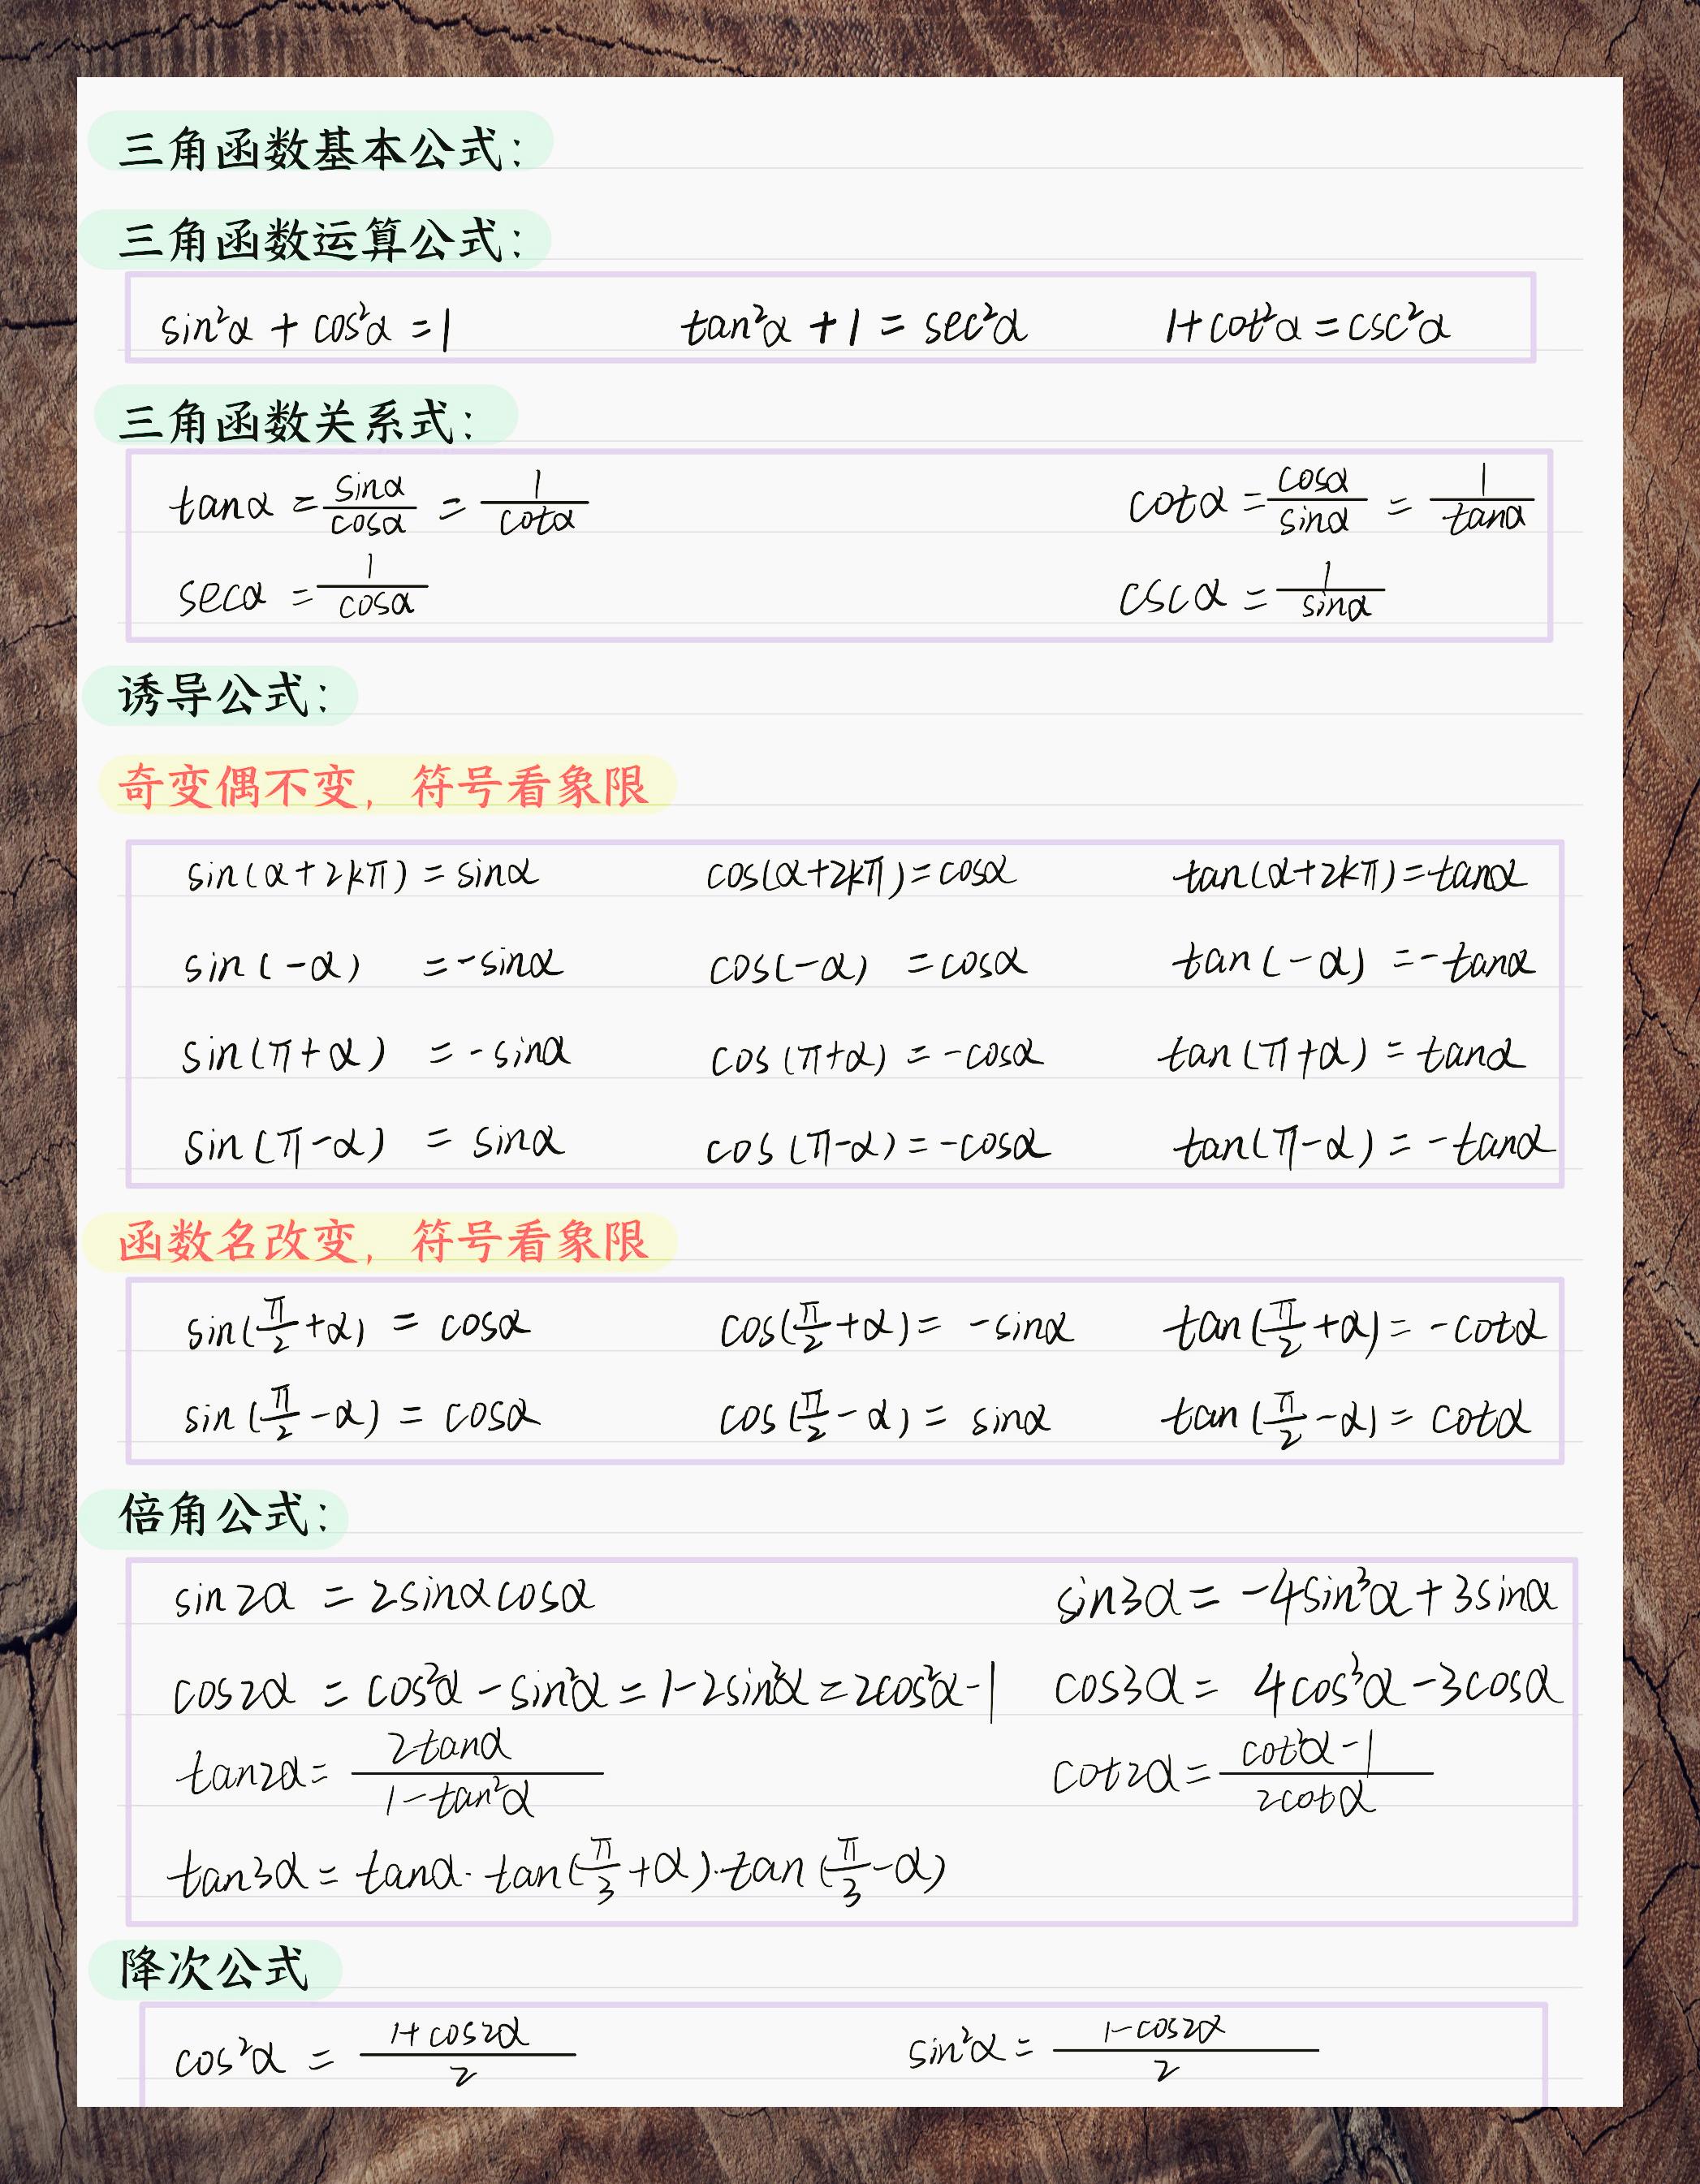 三角函数基本公式：
三角函数运算公式：
sin²α + cos²α = 1 tan²α + 1 = sec²α 1 + cot²α = csc²α
三角函数关系式：
tanα = sinα/cosα = 1/cotα cotα = cosα/sinα = 1/tanα
secα = 1/cosα cscα = 1/sinα
诱导公式：
奇变偶不变，符号看象限
sin(α+2kπ) = sinα cos(α+2kπ) = cosα tan(α+2kπ) = tanα
sin(-α) = -sinα cos(-α) = cosα tan(-α) = -tanα
sin(π+α) = -sinα cos(π+α) = -cosα tan(π+α) = tanα
sin(π-α) = sinα cos(π-α) = -cosα tan(π-α) = -tanα
函数名改变，符号看象限
sin(π/2+α) = cosα cos(π/2+α) = -sinα tan(π/2+α) = -cotα
sin(π/2-α) = cosα cos(π/2-α) = sinα tan(π/2-α) = cotα
倍角公式：
sin2α = 2sinαcosα sin3α = -4sin³α + 3sinα
cos2α = cos²α - sin²α = 1-2sin²α = 2cos²α-1 cos3α = 4cos³α - 3cosα
tan2α = 2tanα/1-tan²α cot2α = cot²α-1/2cotα
tan3α = tanα·tan(π/3+α)·tan(π/3-α)
降次公式
cos²α = 1+cos2α/2 sin²α = 1-cos2α/2